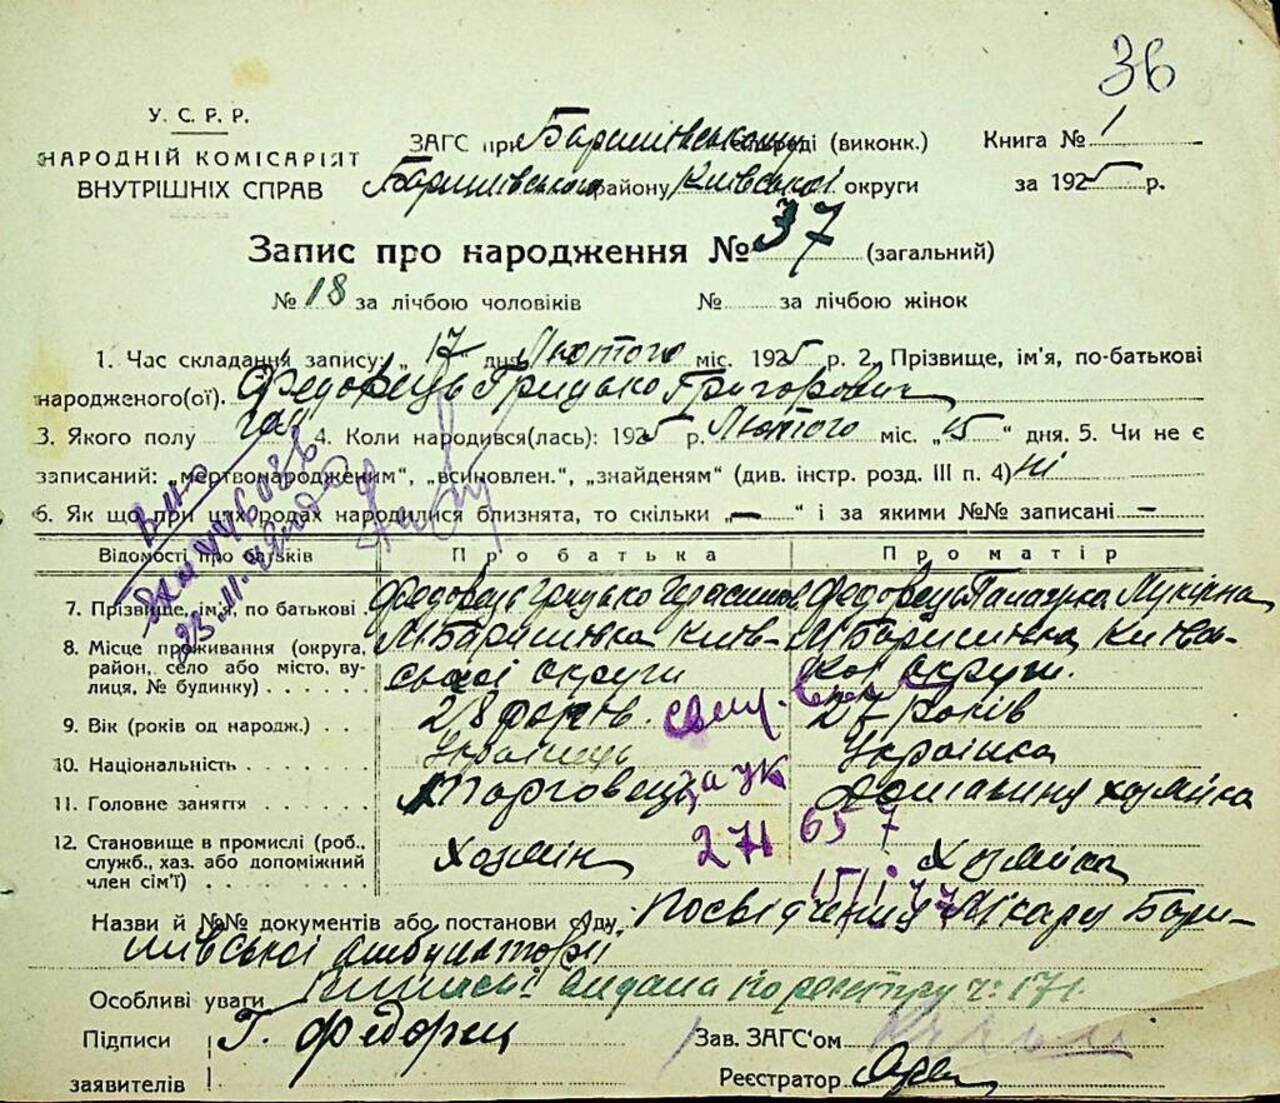 36
У. С. Р. Р.
НАРОДНІЙ КОМІСАРІЯТ
ВНУТРІШНІХ СПРАВ
ЗАГС при Баришівському (виконк.)
Баришівського району Київської округи
Книга № 1
за 1925 р.
Запис про народження № 37 (загальний)
№ 18 за лічбою чоловіків № за лічбою жінок
1. Час складання запису: „17“ дня Лютого міс. 1925 р. 2. Прізвище, ім'я, по-батькові
народженого(ої). Федовець Грицько Григорович
3. Якого полу 4. Коли народився(лась): 1925 р. Лютого міс. „15“ дня. 5. Чи не є
записаний: „мертвонародженим“, „всиновлен.“, „знайденям“ (див. інстр. розд. III п. 4) ні
6. Як що при цих родах народилися близнята, то скільки „—“ і за якими №№ записані —
Відомості про батьків Про батька Про матір
7. Прізвище, ім'я, по батькові Федовець Грицько Федовець
8. Місце проживання (округа, район, село або місто, вулиця, № будинку) М Баришівка Київ-
ської округи М Баришівка Київсь-
кої округи.
9. Вік (років од народж.) 28 27 років
10. Національність Українець Українка
11. Головне заняття Торговець хозяйка
12. Становище в промислі (роб., служб., хаз. або допоміжний член сім'ї) Хозяїн Хозяйка
свид.
за УК
271 657
Назви й №№ документів або постанови суду Посвідчення Лікаря Бари-
шівської амбулаторії
Особливі уваги видана по реєстру ч: 171.
Підписи Г. Федорец Зав. ЗАГС'ом
заявителів Реєстратор